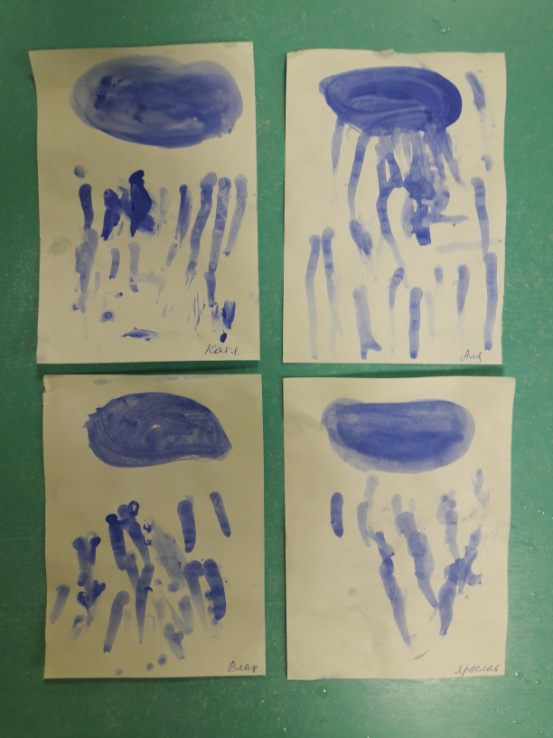 Катя.
Аля
Влад
Ярослав